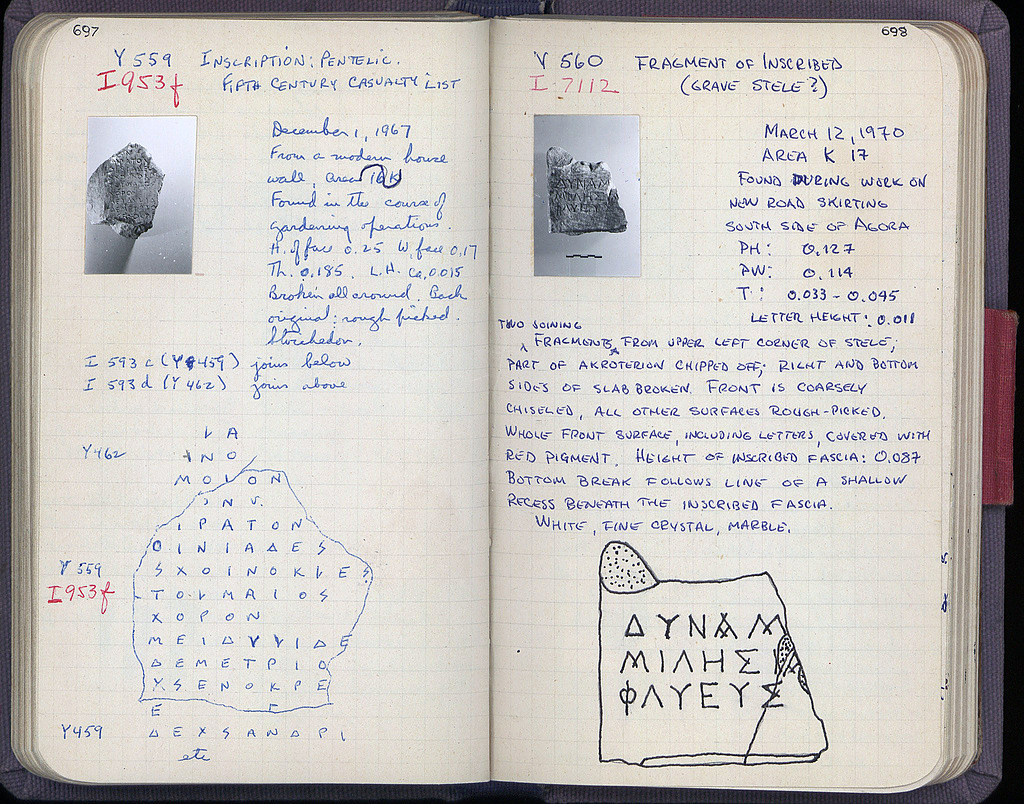 697
Y 559 INSCRIPTION: PENTELIC.
I 953f FIFTH CENTURY CASUALTY LIST
December 1, 1967
From a modern house
wall, area 16 K
Found in the course of
gardening operations.
H. of face 0.25 W. face 0.17
Th. 0.185. L.H. ca. 0.015
Broken all around. Back
original: rough picked.
Stoichedon.
I 593 c (Y 459) joins below
I 593 d (Y 462) joins above
Y462
Ι Ν Ο
Μ Ο Ι Ο Ν
Ι Ρ Α Τ Ο Ν
Ο Ι Ν Ι Α Δ Ε S
Y 559
S Χ Ο Ι Ν Ο Κ Ͱ Ε S
I 953f
Τ Ο Ͱ Μ Α Ι Ο S
Χ Ο Ρ Ο Ν
Μ Ε Ι Δ Υ Ͱ Ͱ Ι Δ Ε
Δ Ε Μ Ε Τ Ρ Ι Ο
Χ S Ε Ν Ο Κ Ρ Ε
Ε
Y459
Δ Ε Χ S Α Ν Δ Ρ Ι
etc
698
Y 560 FRAGMENT OF INSCRIBED
I 7112 (GRAVE STELE?)
MARCH 12, 1970
AREA K 17
FOUND DURING WORK ON
NEW ROAD SKIRTING
SOUTH SIDE OF AGORA
PH: 0.127
PW: 0.114
T: 0.033 - 0.045
LETTER HEIGHT: 0.011
TWO JOINING
FRAGMENTS FROM UPPER LEFT CORNER OF STELE;
PART OF AKROTERION CHIPPED OFF; RIGHT AND BOTTOM
SIDES OF SLAB BROKEN. FRONT IS COARSELY
CHISELED, ALL OTHER SURFACES ROUGH-PICKED.
WHOLE FRONT SURFACE, INCLUDING LETTERS, COVERED WITH
RED PIGMENT. HEIGHT OF INSCRIBED FASCIA: 0.087
BOTTOM BREAK FOLLOWS LINE OF A SHALLOW
RECESS BENEATH THE INSCRIBED FASCIA.
WHITE, FINE CRYSTAL, MARBLE.
ΔΥΝΑΜ
ΜΙΛΗΣΙΑ
ΦΛΥΕΥΣ